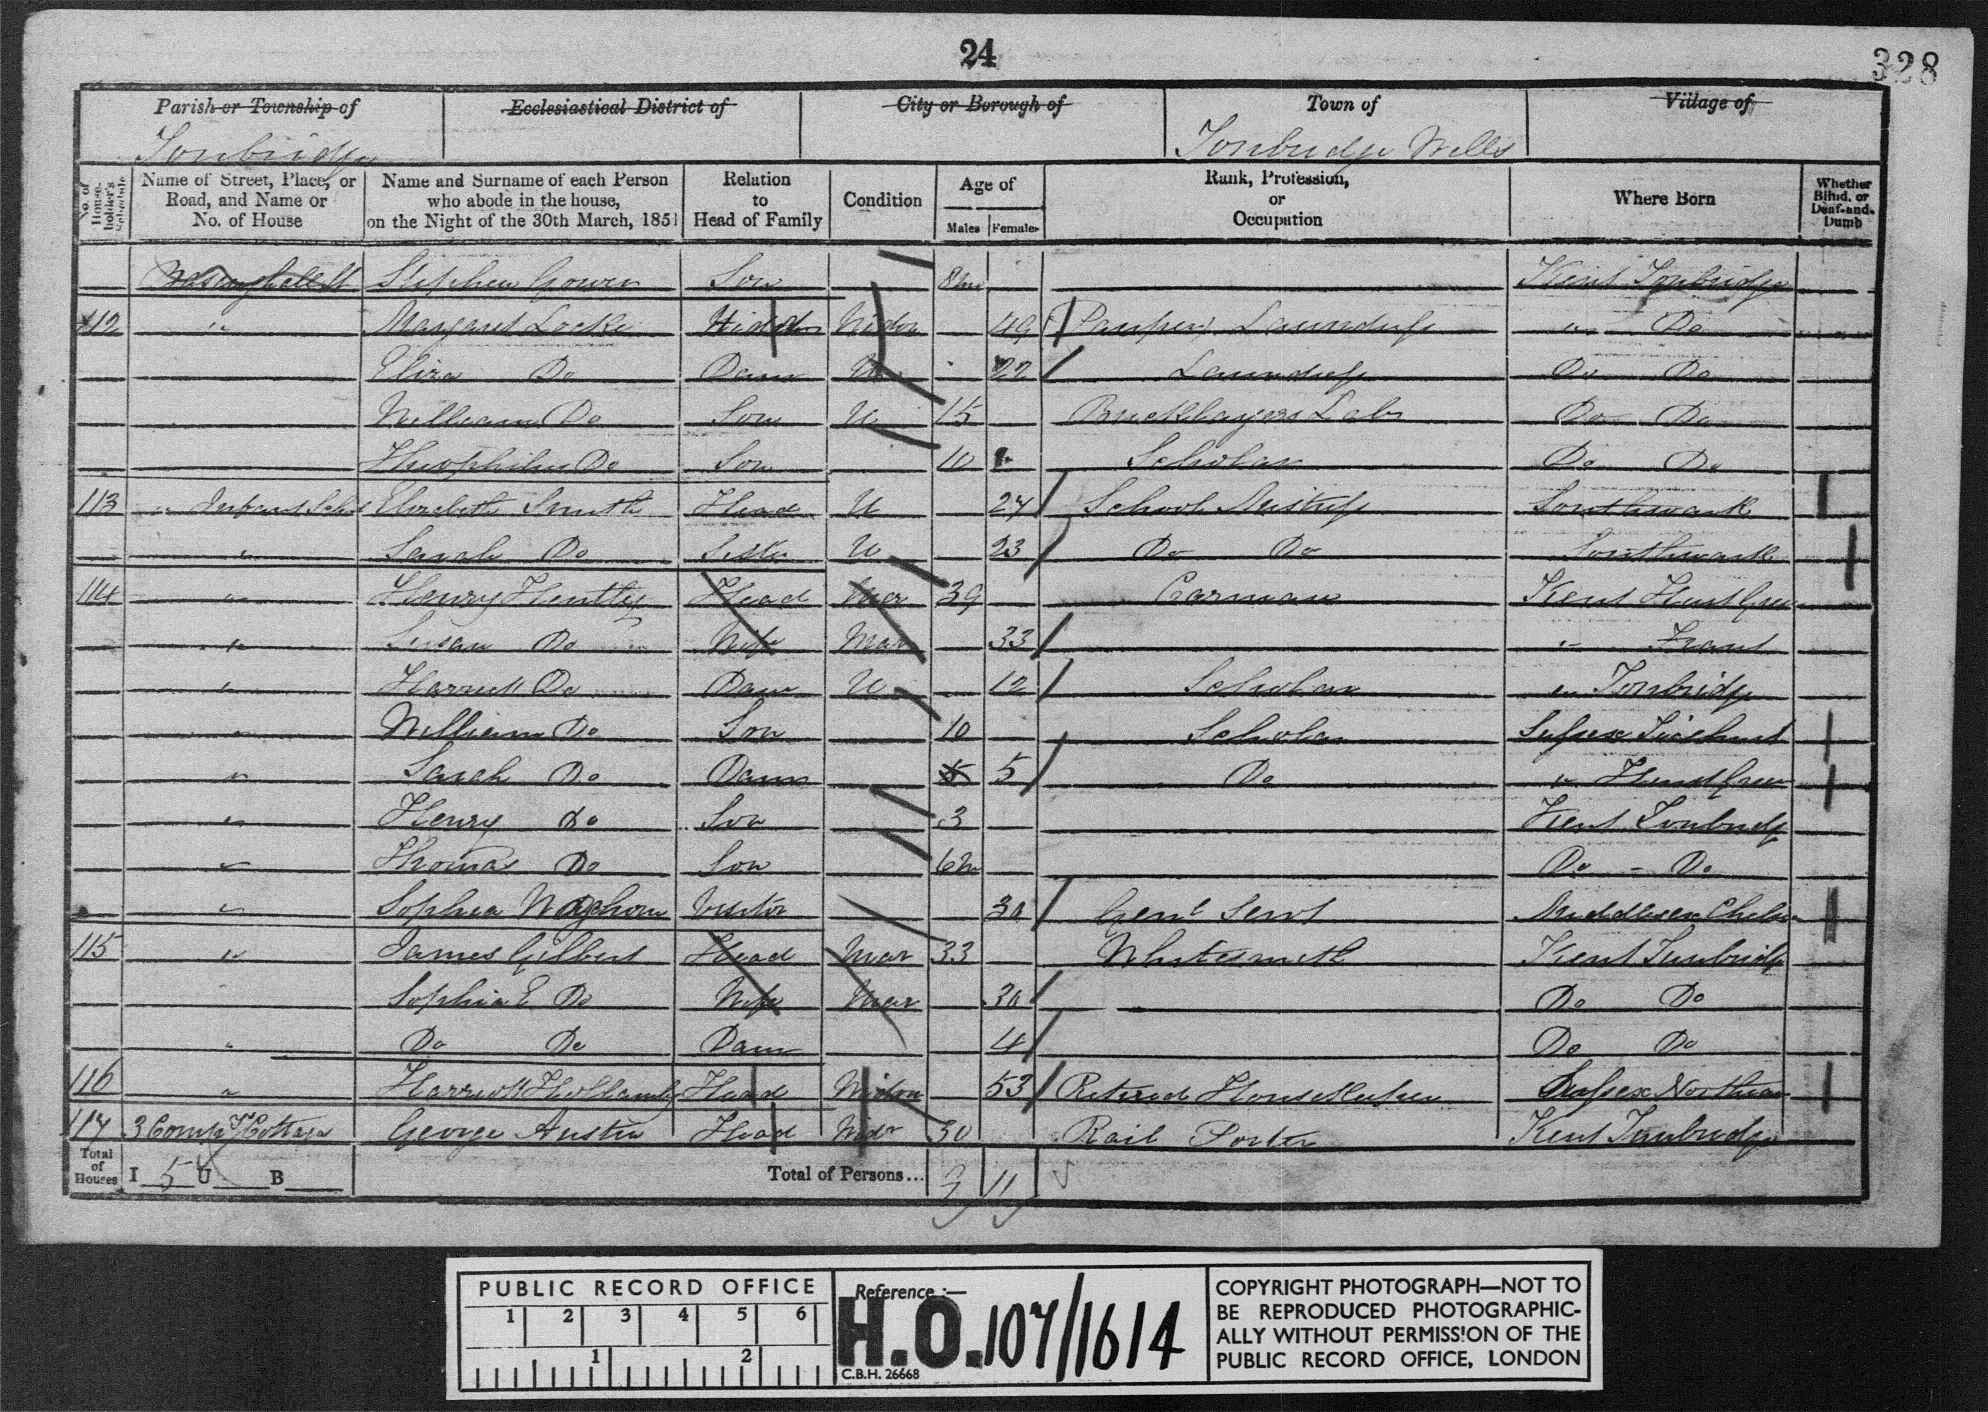 24
328
Parish or Township of
Ecclesiastical District of
City or Borough of
Town of
Village of
Tonbridge
Tonbridge Wells
No. of House-holder's Schedule
Name of Street, Place, or Road, and Name or No. of House
Name and Surname of each Person who abode in the house, on the Night of the 30th March, 1851
Relation to Head of Family
Condition
Age of
Males
Females
Rank, Profession, or Occupation
Where Born
Whether Blind, or Deaf-and-Dumb
Stephen Gower Son 8m Kent Tonbridge
112 " Margaret Locke Widow 49 Pauper, Laundress " Do
Eliza Do Daur U 22 Laundress Do Do
William Do Son U 15 Bricklayers Labr Do Do
Theophilus Do Son 10 Scholar Do Do
113 " Infant School Elizabeth Smith Head U 27 School Mistress Southwark
" Sarah Do Sister U 23 Do Do Southwark
114 " Henry Hentley Head Mar 39 Carman Kent Hurst Green
" Susan Do Wife Mar 33 " Frant
" Harriett Do Daur U 12 Scholar " Tonbridge
" William Do Son 10 Scholar Sussex Ticehurst
" Sarah Do Daur 5 Do " Hurst Green
" Henry Do Son 3 Kent Tonbridge
" Thomas Do Son 6m Do - Do
" Sophia Waghorn Visitor 30 Genl Servt Middlesex Chelsea
115 " James Gilbert Head Mar 33 Whitesmith Kent Tunbridge
Sophia E Do Wife Mar 30 Do Do
" Do Do Daur 4 Do Do
116 " Harriott Hollamby Head Widow 53 Retired Housekeeper Sussex
117 3 Cottage George Austin Head Widr 30 Rail Porter Kent Tunbridge
Total of Houses I 5 U B
Total of Persons... 9 11
PUBLIC RECORD OFFICE
1 2 3 4 5 6
1 2
Reference :—
H.O. 107/1614
C.B.H. 26668
COPYRIGHT PHOTOGRAPH—NOT TO
BE REPRODUCED PHOTOGRAPHIC-
ALLY WITHOUT PERMISSION OF THE
PUBLIC RECORD OFFICE, LONDON